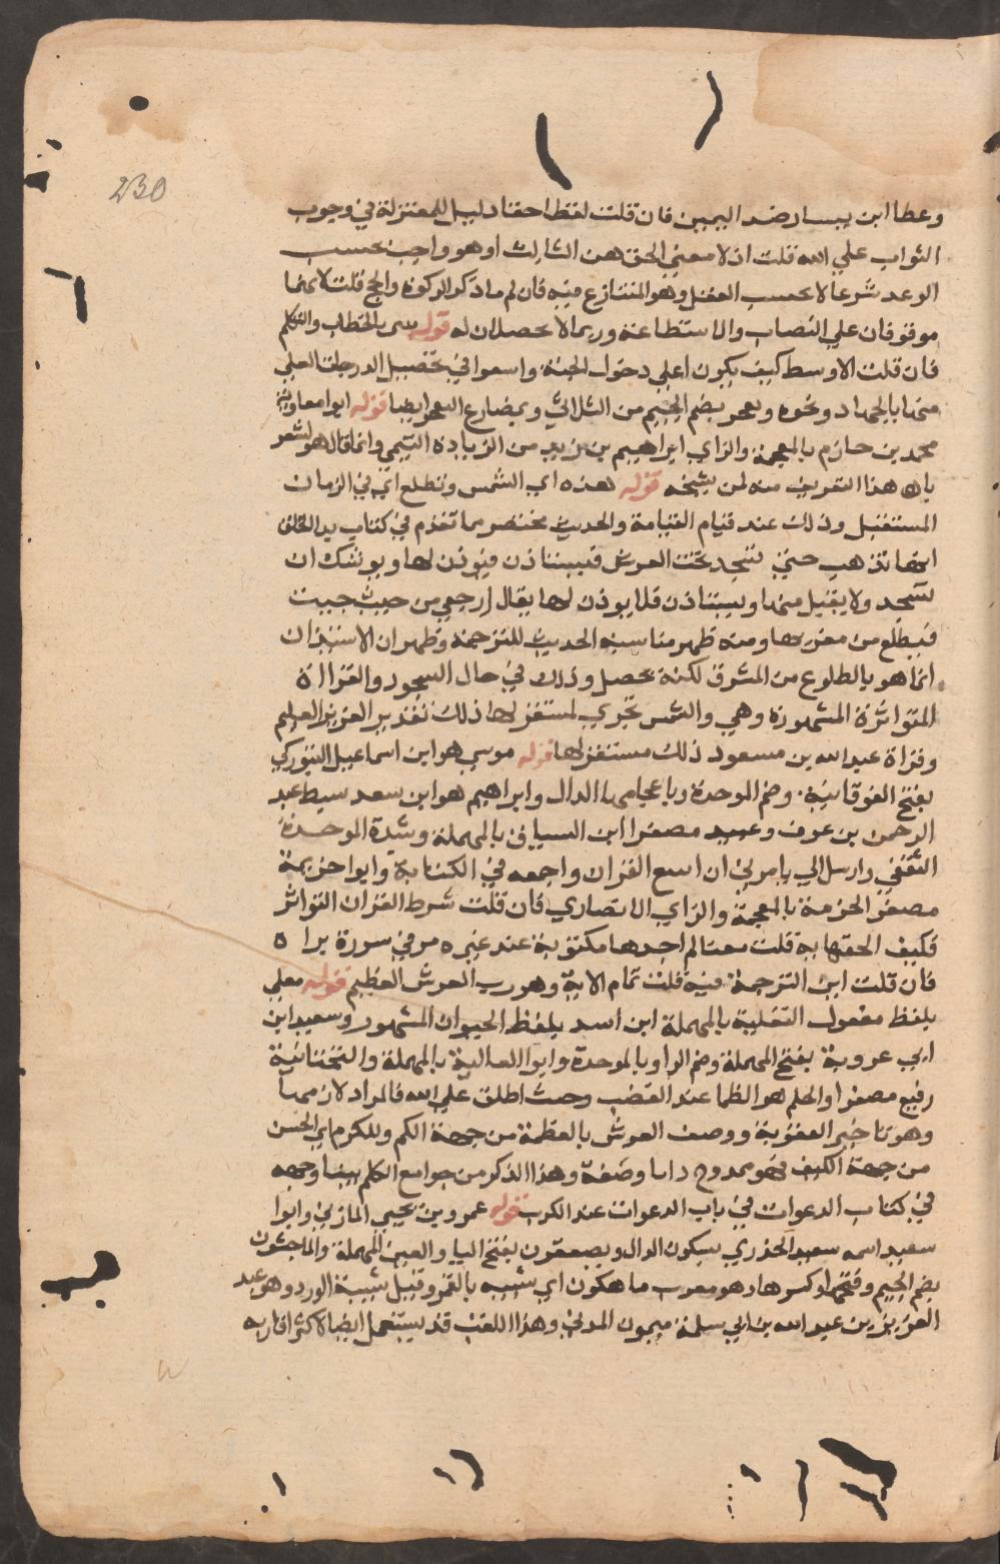 230
وعطا ابن يسار ضد اليمين فان قلت لفظ احقا دليل للمعتزلة في وجوب
الثواب علي الله قلت اذ لا معني الحق هن الثالث او هو واجب بحسب
الوعد شرعا لا بحسب العقل وهو المتنازع فيه فان لم ما ذكر الزكوة والحج قلت لانهما
موقوفان علي النصاب والاستطاعة وربما لا يحصلان له قوله بالخطاب والتكلم
فان قلت الاوسط كيف يكون اعلي دخول الجنة واسعوا في تحصيل الدرجات العلي
منها بالجهاد ونحوه وبضم الجيم من الثلاثي ايضا قوله ابوا معاوية
محمد بن حازم بالمعجمة والزاي ابراهيم بن من الزيادة التيمي وانما قال هو لشعر
بان هذا التعريف منه لمن شيخه قوله هذه اي الشمس وتطلع اي في الزمان
المستقبل وذلك عند قيام القيامة والحديث مختصر مما تقدم في كتاب بدا الخلق
انها تذهب حتي تسجد تحت العرش فتستاذن فيوذن لها ويوشك ان
تسجد ولا يقبل منها وتستاذن فلا يوذن لها يقال ارجعي من حيث جيت
فتطلع من مغربها ومنه ظهر مناسبة الحديث للترجمة وظهر ان الاستيذان
انما هو بالطلوع من المشرق لكنه يحصل وذلك في حال السجود والقراءة
المتواترة المشهورة وهي والشمس تجري لمستقر لها ذلك تقدير العزيز العليم
وقراة عبد الله بن مسعود ذلك مستقر لها قوله موسي هو ابن اسماعيل التبوركي
بفتح الفوقانية وضم الموحدة وباعجام الدال وابراهيم هو ابن سعد سبط عبد
الرحمن بن عوف وعبيد مصغرا ابن السباق بالمهملة وشدة الموحدة
الثقفي وارسل الي يامرني ان اتبع القران واجمعه في الكتابة وابوا خزيمة
مصغر الخزمة بالمعجمة والزاي الانصاري فان قلت شرط القران التواتر
فكيف الحقها به قلت معنا لم اجدها مكتوبة عند غيره مر في سورة براة
فان قلت اين الترجمة فيه قلت تمام الاية وهو رب العرش العظيم قوله معلي
بلفظ مفعول التعلية بالمهملة ابن اسد بلفظ الحيوان المشهور وسعيد ابن
ابي عروبة بفتح المهملة وضم الرا وبالموحدة وابوا العالية بالمهملة والتحتانية
رفيع مصغرا والحلم هو الطما عند الغضب وحيث اطلق علي الله فالمراد لازمها
وهو تاخير العقوبة ووصف العرش بالعظمة من جهة الكم وبالكرم اي الحسن
من جهة الكيف فهو ممدوح ذاتا وصفة وهذا الذكر من جوامع الكلم بينا وجهه
في كتاب الدعوات في باب الدعوات عند الكرب قوله عمرو بن يحيي المازني وابوا
سعيد اسمه سعيد الخدري بسكون الدال ويصعقون بفتح اليا والعين المهملة والماجشون
بضم الجيم وفتحها وكسرها وهو معرب ماهكون اي شبيه بالقمر وقيل شبيه الورد وهو عبد
العزيز بن عبد الله بن ابي سلمة ميمون المدني وهذا اللقب قد يستعمل ايضا لاكثر اقاربه